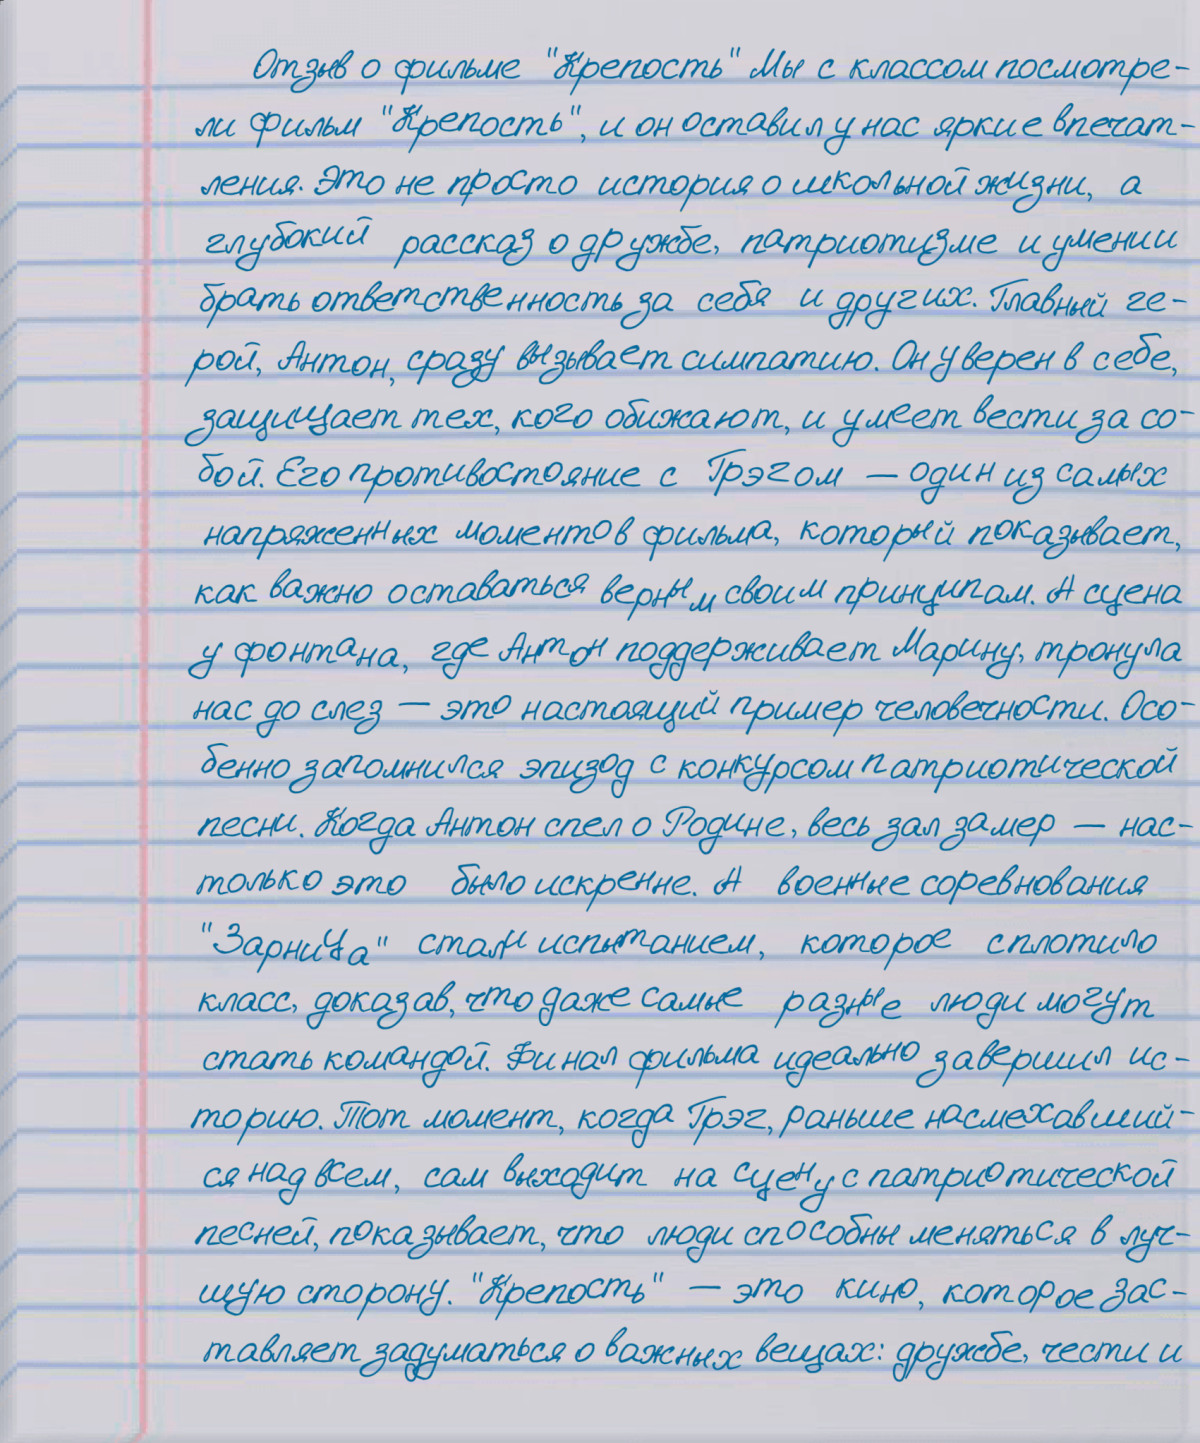 Отзыв о фильме "Крепость" Мы с классом посмотре-
ли фильм "Крепость", и он оставил у нас яркие впечат-
ления. Это не просто история о школьной жизни, а
глубокий рассказ о дружбе, патриотизме и умении
брать ответственность за себя и других. Главный ге-
рой, Антон, сразу вызывает симпатию. Он уверен в себе,
защищает тех, кого обижают, и умеет вести за со-
бой. Его противостояние с Грэгом — один из самых
напряженных моментов фильма, который показывает,
как важно оставаться верным своим принципам. А сцена
у фонтана, где Антон поддерживает Марину, тронула
нас до слез — это настоящий пример человечности. Осо-
бенно запомнился эпизод с конкурсом патриотической
песни. Когда Антон спел о Родине, весь зал замер — нас-
только это было искренне. А военные соревнования
"Зарница" стали испытанием, которое сплотило
класс, доказав, что даже самые разные люди могут
стать командой. Финал фильма идеально завершил ис-
торию. Тот момент, когда Грэг, раньше насмехавший-
ся над всем, сам выходит на сцену с патриотической
песней, показывает, что люди способны меняться в луч-
шую сторону. "Крепость" — это кино, которое зас-
тавляет задуматься о важных вещах: дружбе, чести и